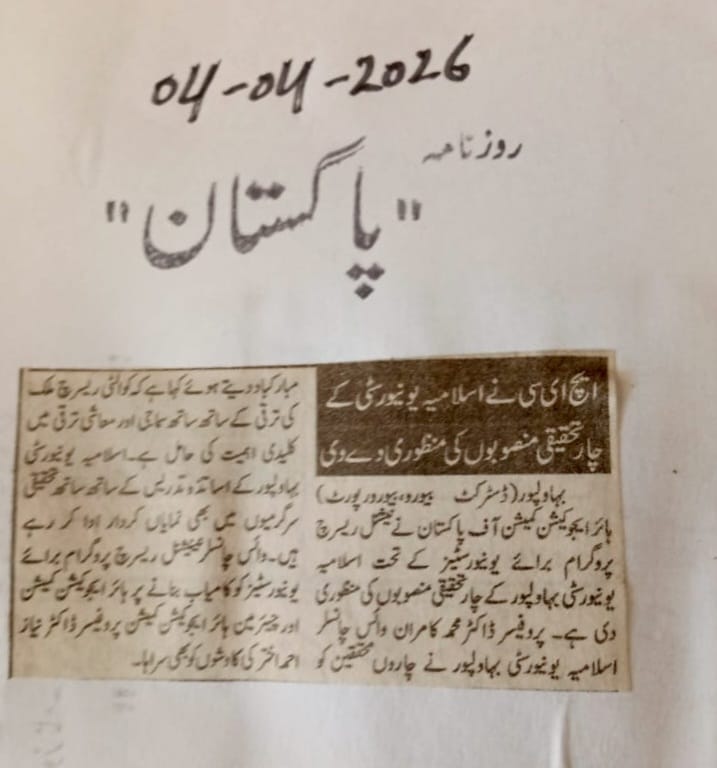 04-04-2026
روزنامہ
"پاکستان"
ایچ ای سی نے اسلامیہ یونیورسٹی کے
چار تحقیقی منصوبوں کی منظوری دے دی
بہاولپور (ڈسٹرکٹ بیورو، بیورورپورٹ)
ہائر ایجوکیشن کمیشن آف پاکستان نے نیشنل ریسرچ
پروگرام برائے یونیورسٹیز کے تحت اسلامیہ
یونیورسٹی بہاولپور کے چار تحقیقی منصوبوں کی منظوری
دی ہے۔ پروفیسر ڈاکٹر محمد کامران وائس چانسلر
اسلامیہ یونیورسٹی بہاولپور نے چاروں محققین کو
مبارکباد دیتے ہوئے کہا ہے کہ کوالٹی ریسرچ ملک
کی ترقی کے ساتھ ساتھ سماجی اور معاشی ترقی میں
کلیدی اہمیت کی حامل ہے۔ اسلامیہ یونیورسٹی
بہاولپور کے اساتذہ تدریس کے ساتھ ساتھ تحقیقی
سرگرمیوں میں بھی نمایاں کردار ادا کر رہے
ہیں۔ وائس چانسلر نیشنل ریسرچ پروگرام برائے
یونیورسٹیز کو کامیاب بنانے پر ہائر ایجوکیشن کمیشن
اور چیئرمین ہائر ایجوکیشن کمیشن پروفیسر ڈاکٹر نیاز
احمد اختر کی کاوشوں کو بھی سراہا۔